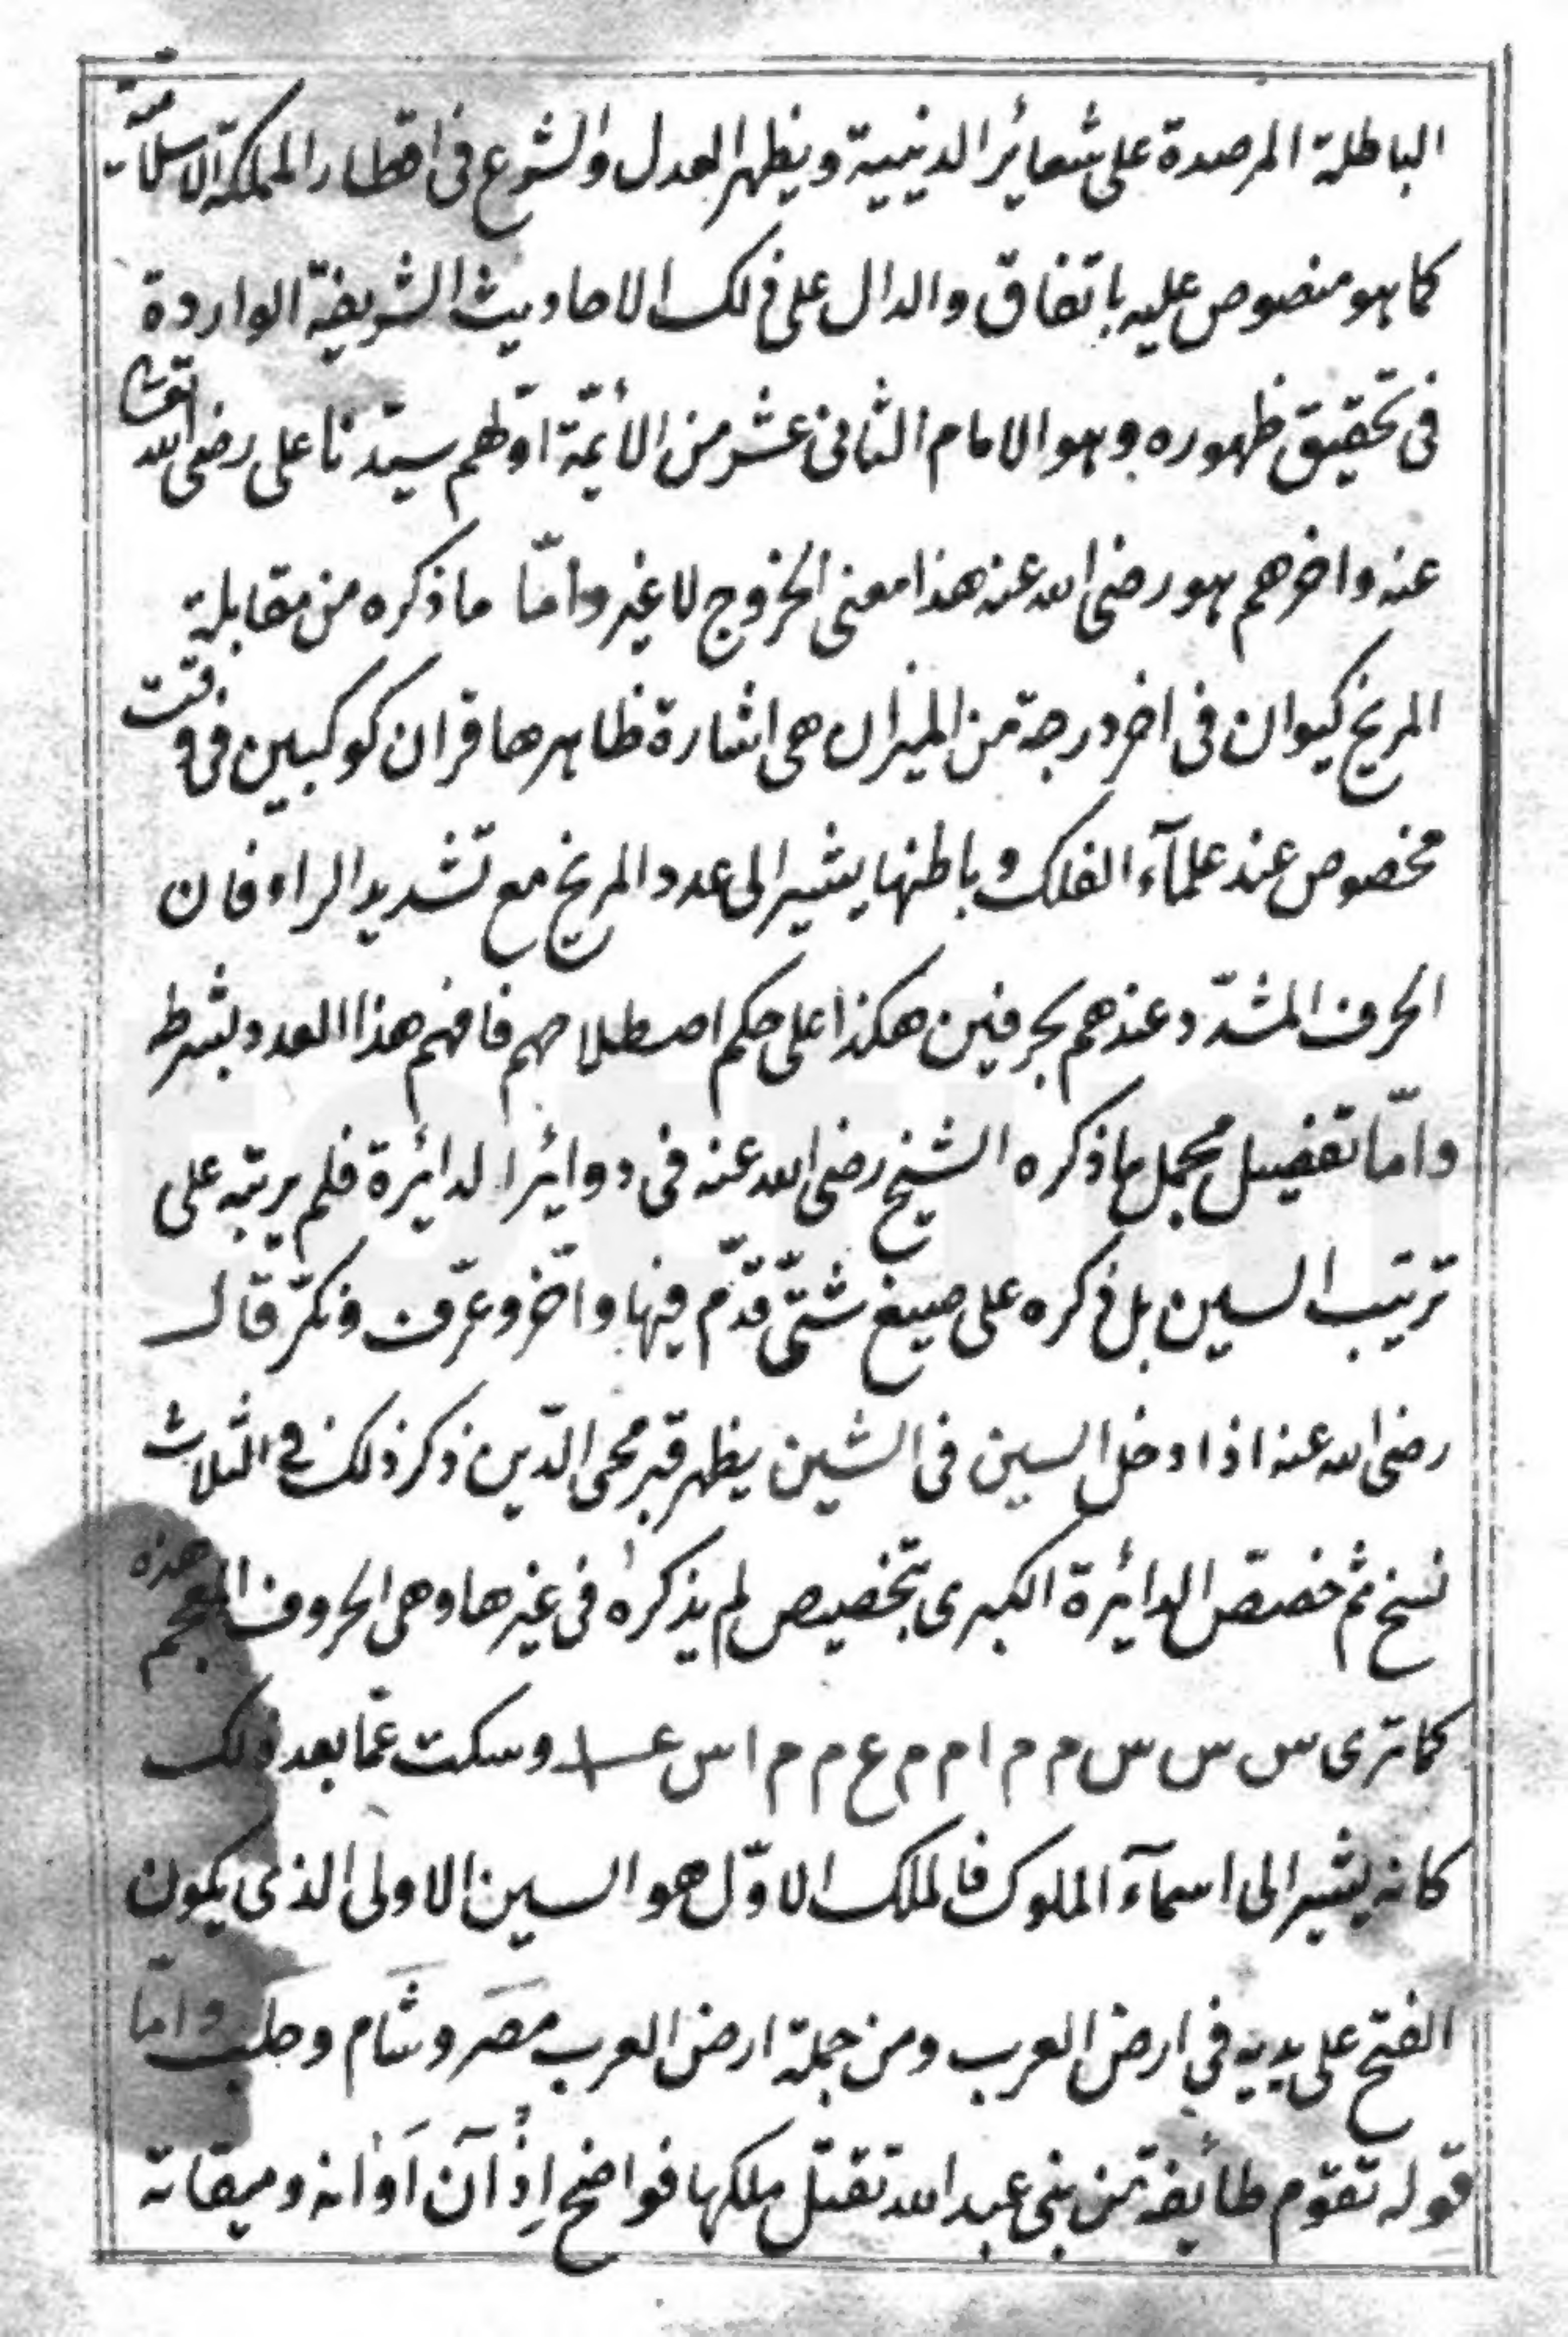 الباطلة المرصدة على شعائر الدينية ويظهر العدل والشرع فى اقطار المملكة الاسلامية
كما هو منصوص عليه باتفاق والدال على ذلك الاحاديث الشريفة الواردة
فى تحقيق ظهوره وهو الامام الثانى عشر من الأئمة اولهم سيدنا على رضى الله تعالى
عنه واخرهم هو رضى الله عنه هذا معنى الخروج لا غير وامّا ما ذكره من مقابلة
المريخ كيوان فى اخر درجة من الميزان هى اشارة ظاهرها قران كوكبين فى وقت
مخصوص عند علمآء الفلك وباطنها يشير الى عدد المريخ مع تشديد الراء فان
الحرف المشدّد عندهم بحرفين هكذا على حكم اصطلاحهم فافهم هذا العدد بشرطه
وامّا تفصيل مجمل ما ذكره الشيخ رضى الله عنه فى دوائر الدائرة فلم يرتبه على
ترتيب السين بل ذكره على صيغ شتّى قدّم فيها واخّر وعرّف ونكرّ قال
رضى الله عنه اذا دخل السين فى الشين يظهر قبر محى الدّين ذكر ذلك فى الثلاث
نسخ ثم خصّص الدائرة الكبرى بتخصيص لم يذكره فى غيرها وهى الحروف المعجم هذه
كما ترى س س س س م م ا م م ع م م ا س عـ وسكت عمّا بعد ذلك
كانه يشير الى اسمآء الملوك فالملك الاوّل هو السين الاولى الذى يكون
الفتح على يديه فى ارض العرب ومن جملة ارض العرب مصر وشام وحلب وامّا
قوله تقوم طائفة من بنى عبد الله تقتل ملكها فواضح اذْ آن اَوانه وميقاته